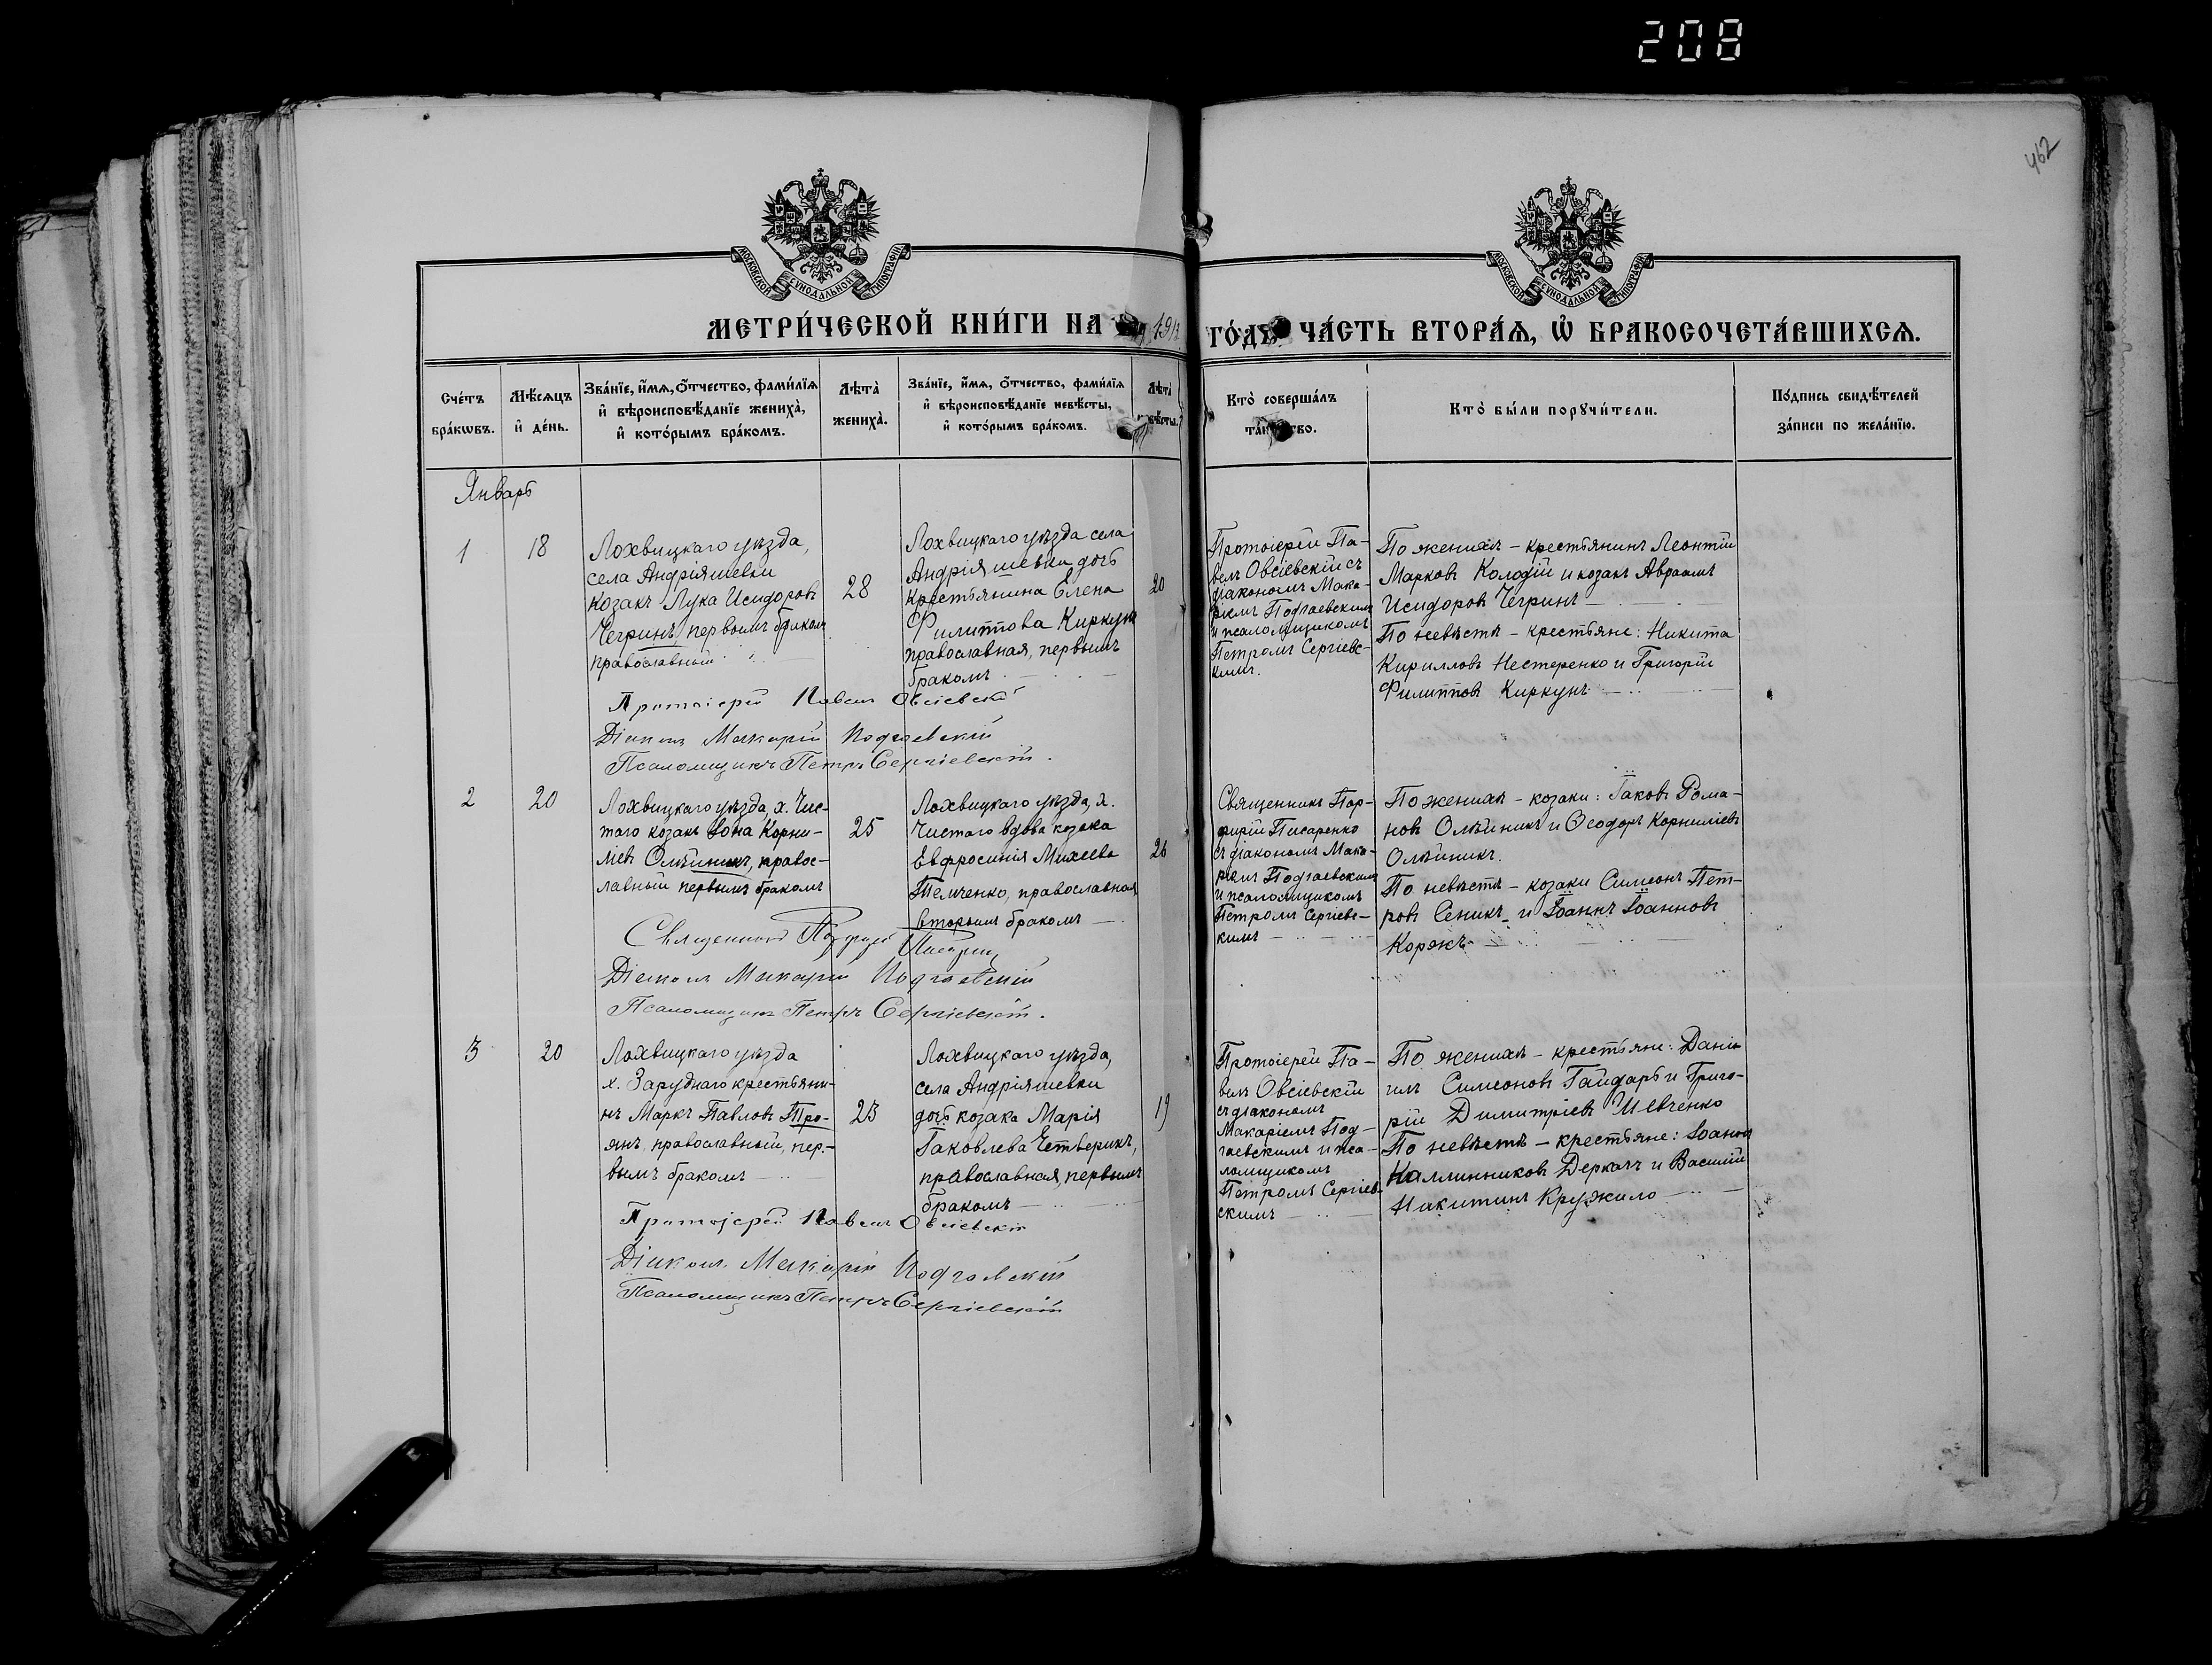 208
462
МОСКОВСКОЙ СѴНОДАЛЬНОЙ ТИПОГРАФІИ
МОСКОВСКОЙ СѴНОДАЛЬНОЙ ТИПОГРАФІИ
МЕТРИ́ЧЕСКОЙ КНИ́ГИ НА
ГО́ДЪ ЧА́СТЬ ВТОРА́Я, Ѡ БРАКОСОЧЕТА́ВШИХСЯ.
Сче́тъ
бра́кѡвъ.
Мѣ́сяцъ
и҆ де́нь.
Зва́нїе, и҆́мѧ, ѻ҆́тчество, фами́лїѧ
и҆ вѣроисповѣ́данїе жениха̀,
и҆ кото́рымъ бра́комъ.
Лѣта̀
жениха̀.
Зва́нїе, и҆́мѧ, ѻ҆́тчество, фами́лїѧ
и҆ вѣроисповѣ́данїе невѣ́сты,
и҆ кото́рымъ бра́комъ.
Лѣта̀
Кто̀ соверша́лъ
Кто̀ бы́ли порꙋчи́тели.
По́дпись свидѣ́телей
за́писи по жела́нїю.
Январь
1
18
Лохвицкаго уѣзда,
села Андріяшевки
козакъ Лука Исидоровъ
Чегринъ, первымъ бракомъ
православный
28
Лохвицкаго уѣзда села
Андріяшевки дочь
крестьянина Елена
Филиппова Киркунъ
православная, первымъ
бракомъ
20
Протоіерей Па-
велъ Овсіевскій съ
діакономъ Мака-
ріемъ Подгаевскимъ
и псаломщикомъ
Петромъ Сергіевс-
кимъ.
По женихѣ – крестьянинъ Леонтій
Марковъ Колодій и козакъ Авраамъ
Исидоровъ Чегринъ
По невѣстѣ – крестьяне: Никита
Кирилловъ Нестеренко и Григорій
Филипповъ Киркунъ
Протоіерей Павелъ Овсіевскій
Діаконъ Макарій Подгаевскій
Псаломщикъ Петръ Сергіевскій.
2
20
Лохвицкаго уѣзда, х. Чис-
таго козакъ Іона Корни-
ліевъ Олѣйникъ, правос-
лавный первымъ бракомъ
25
Лохвицкаго уѣзда, х.
Чистаго вдова козака
Евфросинія Михеева
Темченко, православная
вторымъ бракомъ
26
Священникъ Пор-
фирій Писаренко
съ діакономъ Мака-
ріемъ Подгаевскимъ
и псаломщикомъ
Петромъ Сергіевс-
кимъ
По женихѣ – козаки: Іаковъ Рома-
новъ Олѣйникъ и Ѳеодоръ Корниліевъ
Олѣйникъ.
По невѣстѣ – козаки Симеонъ Пет-
ровъ Сеникъ и Іоаннъ Іоанновъ
Коржъ
Священникъ Порфирій
Діаконъ Макарій Подгаевскій
Псаломщикъ Петръ Сергіевскій.
3
20
Лохвицкаго уѣзда
х. Заруднаго крестьяни-
нъ Маркъ Павловъ Тро-
янъ, православный, пер-
вымъ бракомъ
23
Лохвицкаго уѣзда,
села Андріяшевки
дочь козака Марія
Іаковлева Четверикъ,
православная, первымъ
бракомъ
19
Протоіерей Па-
велъ Овсіевскій
съ діакономъ
Макаріемъ Под-
гаевскимъ и пса-
ломщикомъ
Петромъ Сергіев-
скимъ
По женихѣ – крестьяне: Дані-
илъ Симеоновъ Гайдарь и Григо-
рій Димитріевъ Шевченко
По невѣстѣ – крестьяне: Іоаннъ
Каллинниковъ Деркачъ и Василій
Никитинъ Кружило
Протоіерей Павелъ Овсіевскій
Діаконъ Макарій Подгаевскій
Псаломщикъ Петръ Сергіевскій